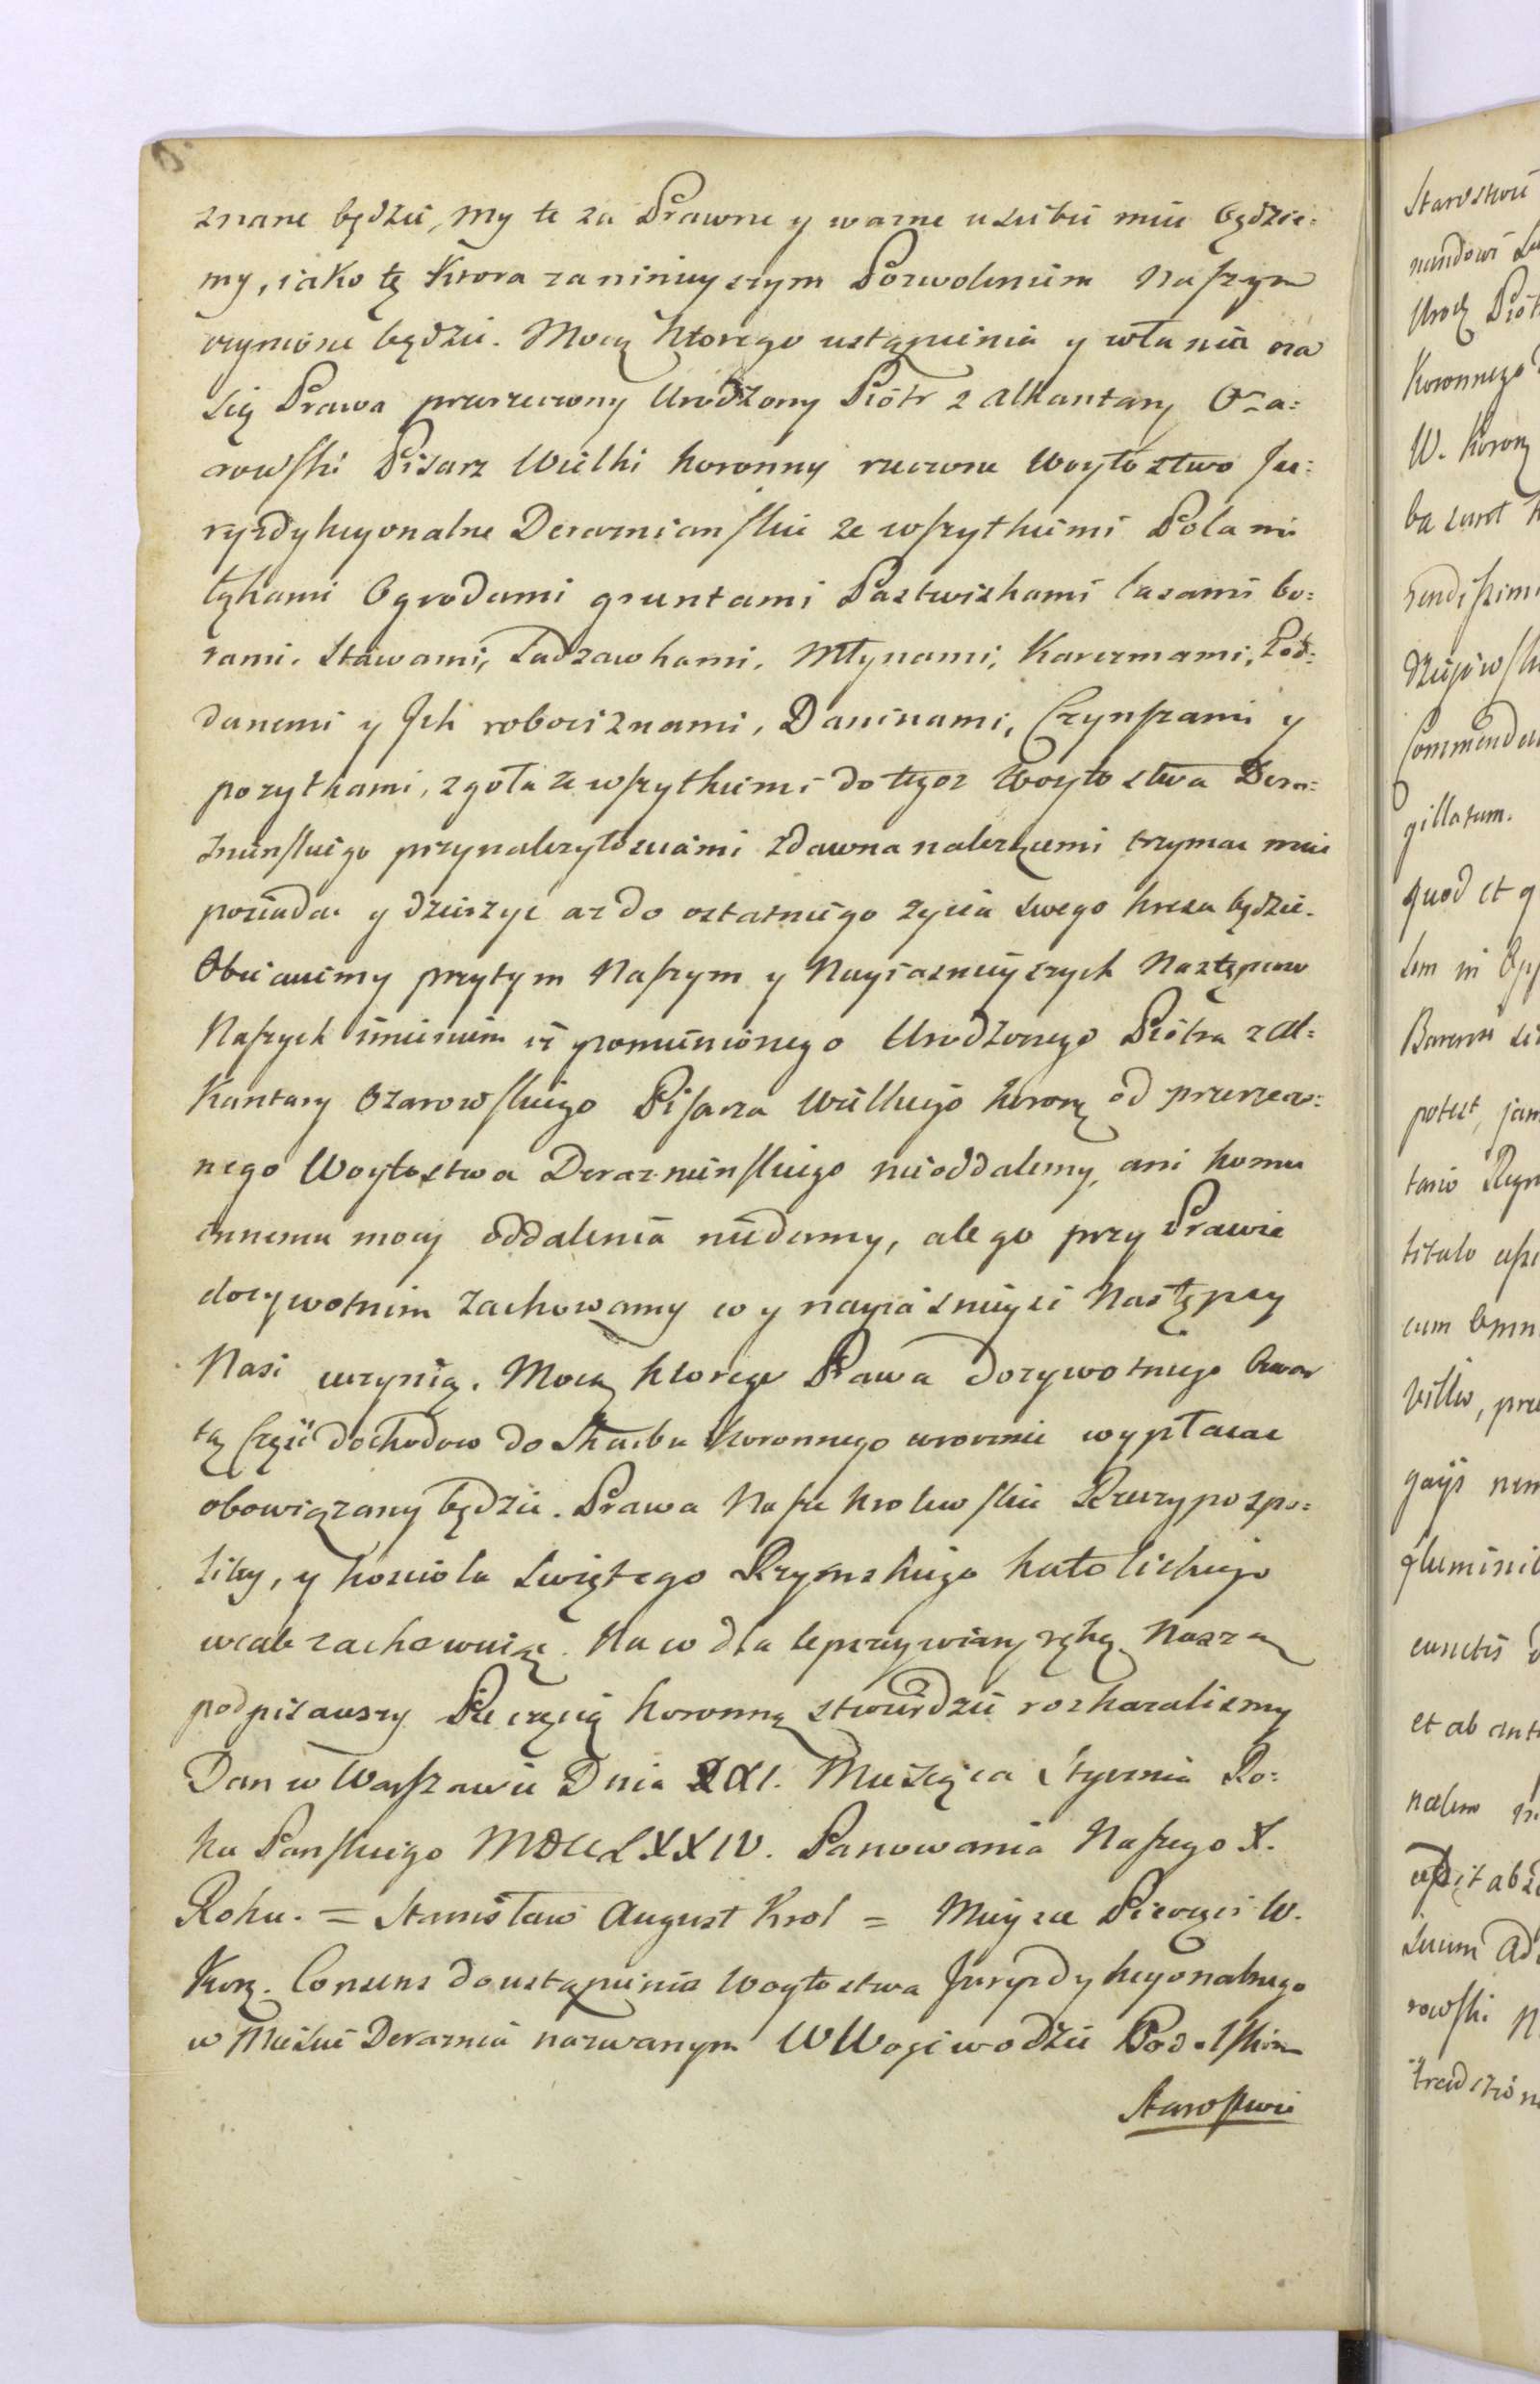 znane będzie, my te za Prawne y wazne u siebie mieć będzie:
my, iako tę ktora za ninieyszym Pozwoleniem Naszym
czynione będzie. Mocą ktorego ustąpienia y wlania na
się Prawa przerzeczony Urodzony Piótr z Alkantary Oza:
rowski Pisarz Wielki koronny rzeczone Woytostwo Ju:
ryzdykcyonalne Derazniańskie ze wszytkiemi Polami
łąkami Ogrodami gruntami Pastwiskami lasami bo:
rami, Stawami, Sadzawkami, Młynami, Karczmami, Pod:
danemi y Jch robociznami, Daninami, Czynszami y
pozytkami, zgoła ze wszytkiemi do tegoz Woytostwa Dera:
znienskiego przynalezytosciami zdawna nalezącemi trzymac miec
posiadac y dzierzyc az do ostatniego zycia swego kresu będzie.
Obiecuiemy przytym Naszym y Nayiasnieyszych Następcow
Naszych imieniem iz pomienionego Urodzonego Piótra z Al:
Kantary Ozarowskiego Pisarza Wielkiego koronę od przerzecz:
nego Woytostwa Deraznienskiego nieoddalemy, ani komu
innemu mocy oddalenia niedamy, ale go przy Prawie
dozywotnim zachowamy co y nayiasnieysi Następcy
Nasi uczynią. Mocą ktorego Prawa dozywotniego kwar
tę Część dochodow do Skarbu Koronnego corocznie wypłacac
obowiązany będzie. Prawa Nasze krolewskie Rzeczypospo:
litey, y kosciola Swiętego Rzymskiego katolickiego
wcale zachowuiąc. Na co dla lepszey wiary ręką Naszą
podpisawszy Pieczęcią koronną ztwierdzić rozkazalismy
Dan w Warszawie Dnia XXI. Miesiąca Stycznia Ro:
ku Panskiego MDCCLXXIV. Panowania Naszego X.
Roku. = Stanisław August Krol = Mieysce Pieczęci W.
Korą. Consens do ustąpienia Woytostwa Juryzdykcyonalnego
w Miescie Deraznia nazwanym W Wojewodzie Podolskim
Starostwie
Starostwie
Urodz Piót
Koronnego
W. korony
quod et q
potest, jam
tario Regn
titulo
cum
cunctis
et ab ant
gillatum.